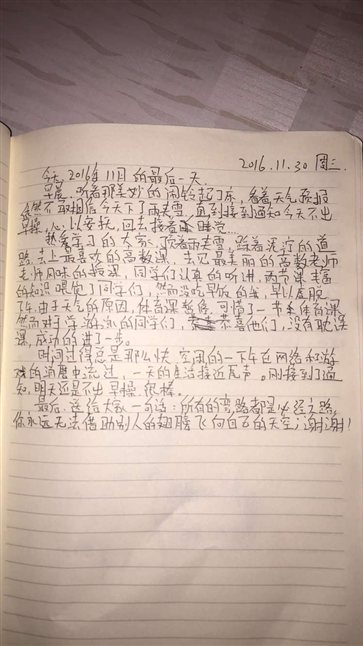 2016.11.30 周三
今天,2016年11月的最后一天。
早晨,听着那美妙的闹铃起了床,看着天气预报
竟然不敢相信今天下了雨夹雪,直到接到通知今天不出
早操,心以安托,回去接着睡觉…
热爱学习的大家,顶着雨夹雪,踏着泥泞的道
路,去上最喜欢的高数课,去见最美丽的高数老师
老师风味的授课,同学们认真的听讲,两节课丰富
的知识喂饱了同学们,然而没吃早饭的我,早以虚脱
下午由于天气的原因,体育课暂修,可惜了一节体育课
然而对于学的同学们,不喜他们,没有耽误
课,成功的进了一步。
时间过得总是那么快,空闲的一下午在网络和游
戏的消磨中流过,一天的生活接近尾声。刚接到了通
知,明天还是不出早操,很棒。
最后,送给大家一句话:所有的弯路都是必经之路,
你永远无法借助别人的翅膀飞向自己的天空;谢谢!